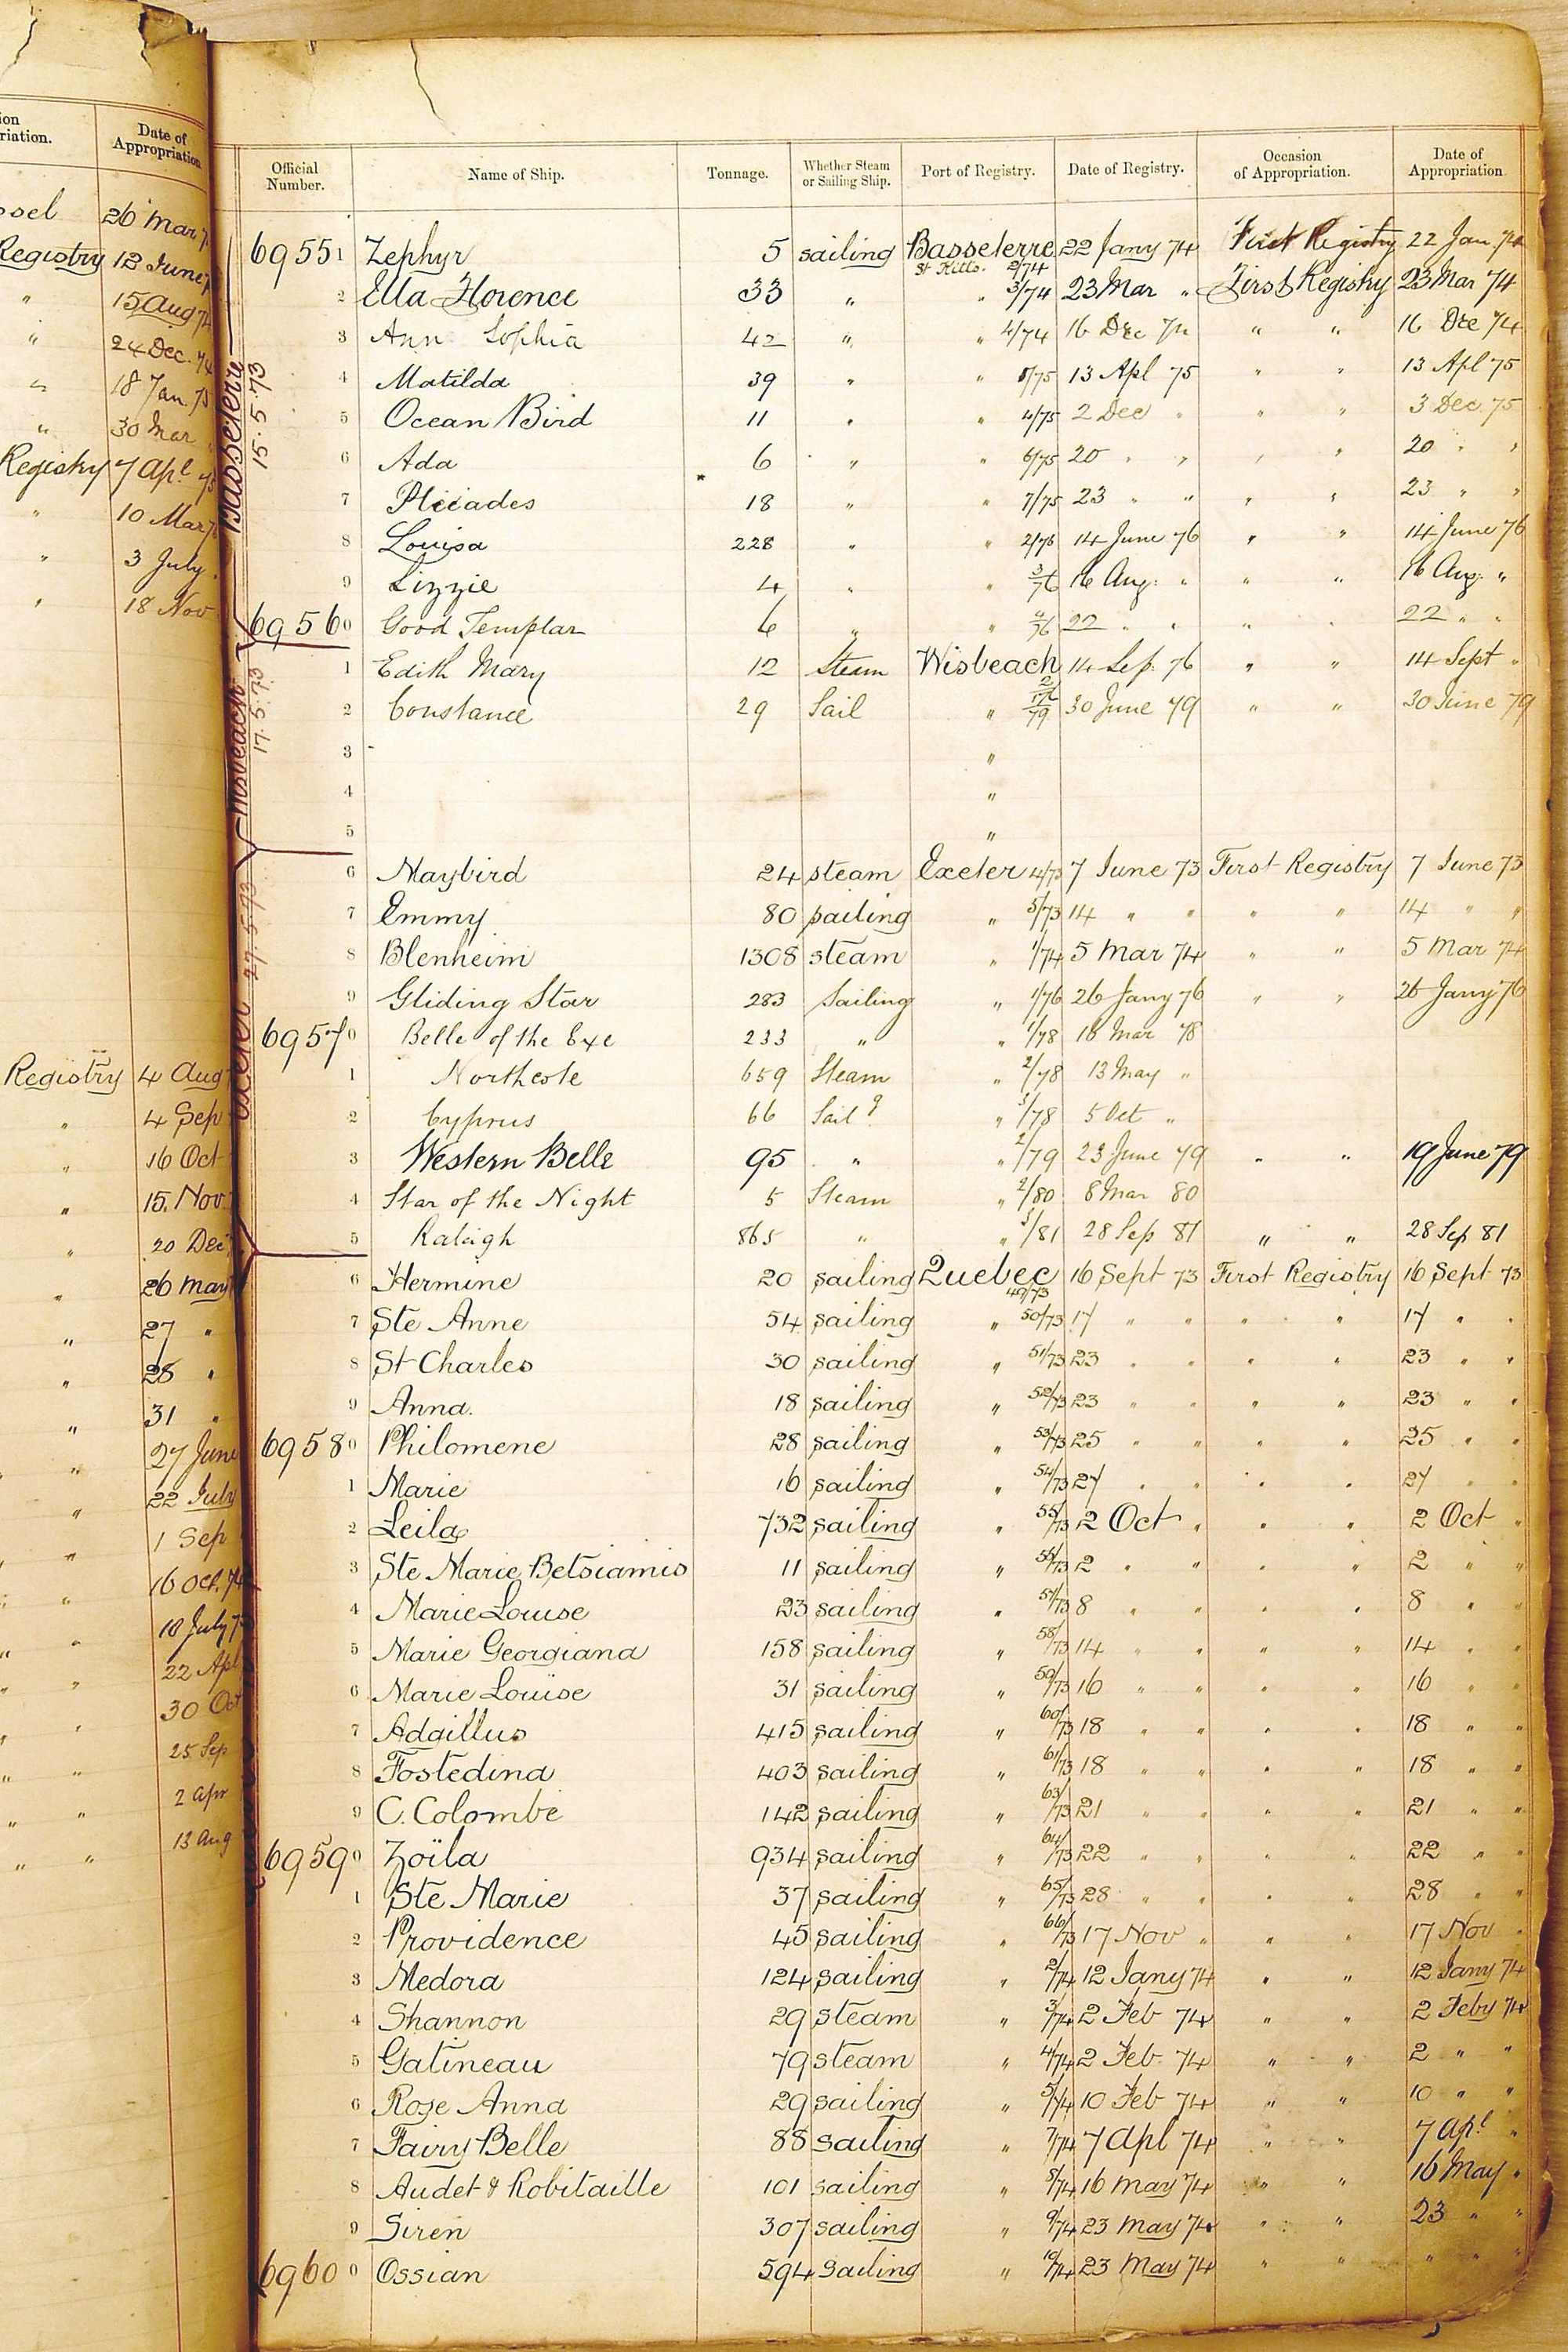 ion
riation.
Date of
Appropriation
26 Mar
Registry 12 June
" 15 Aug
" 24 Dec. 74
" 18 Jan. 75
" 30 Mar
Registry 7 Apl
" 10 Mar
" 3 July
" 18 Nov
Registry 4 Aug
" 4 Sep
" 16 Oct
" 15. Nov
" 20 Dec
" 26 May
" 27 "
" 28 "
" 31 "
" 27 June
" 22 July
" 1 Sep
" 16 Oct. 74
" 10 July
" 22 Apl
" 30 Oct
" 25 Sep
" 2 Apr
" 13 Aug
Official Number. Name of Ship. Tonnage. Whether Steam or Sailing Ship. Port of Registry. Date of Registry. Occasion of Appropriation. Date of Appropriation
Basseterre 15.5.73
69551 Zephyr 5 sailing Basseterre St Kitts. 2/74 22 Jany 74 First Registry 22 Jan. 74
2 Ella Florence 33 " " 3/74 23 Mar " First Registry 23 Mar 74
3 Ann Sophia 42 " " 4/74 16 Dec 74 " " 16 Dec 74
4 Matilda 39 " " 1/75 13 Apl 75 " " 13 Apl 75
5 Ocean Bird 11 " " 4/75 2 Dec " " " 3 Dec. 75
6 Ada 6 " " 6/75 20 " " " " 20 " "
7 Pleiades 18 " " 7/75 23 " " " " 23 " "
8 Louisa 228 " " 2/76 14 June 76 " " 14 June 76
9 Lizzie 4 " " 3/76 16 Aug. " " " 16 Aug. "
69560 Good Templar 6 " " 4/76 22 " " " " 22 " "
Wisbeach 17.5.73
1 Edith Mary 12 Steam Wisbeach 2/76 14 Sep. 76 " " 14 Sept "
2 Constance 29 Sail " 1/79 30 June 79 " " 30 June 79
3 "
4 "
5 "
Exeter 27.5.73
6 Maybird 24 steam Exeter 4/73 7 June 73 First Registry 7 June 73
7 Emmy 80 sailing " 5/73 14 " " " " 14 " "
8 Blenheim 1308 steam " 1/74 5 Mar 74 " " 5 Mar 74
9 Gliding Star 283 Sailing " 1/76 26 Jany 76 " " 26 Jany 76
69570 Belle of the Exe 233 " " 1/78 18 Mar 78
1 Northcote 659 Steam " 2/78 13 May "
2 Cyprus 66 Sail g " 3/78 5 Oct "
3 Western Belle 95 " " 2/79 23 June 79 " " 19 June 79
4 Star of the Night 5 Steam " 2/80 8 Mar 80
5 Raleigh 865 " " 3/81 28 Sep 81 " " 28 Sep 81
6 Hermine 20 sailing Quebec 49/73 16 Sept 73 First Registry 16 Sept 73
7 Ste Anne 54 sailing " 50/73 17 " " " " 17 " "
8 St Charles 30 sailing " 51/73 23 " " " " 23 " "
9 Anna. 18 sailing " 52/73 23 " " " " 23 " "
69580 Philomene 28 sailing " 53/73 25 " " " " 25 " "
1 Marie 16 sailing " 54/73 27 " " " " 27 " "
2 Leila 732 sailing " 55/73 2 Oct " " " 2 Oct "
3 Ste Marie Betsiamis 11 sailing " 2 " " " " 2 " "
4 Marie Louise 23 sailing " 57/73 8 " " " " 8 " "
5 Marie Georgiana 158 sailing " 58/73 14 " " " " 14 " "
6 Marie Louise 31 sailing " 59/73 16 " " " " 16 " "
7 Adgillus 415 sailing " 60/73 18 " " " " 18 " "
8 Fostedina 403 sailing " 61/73 18 " " " " 18 " "
9 C. Colombe 142 sailing " 63/73 21 " " " " 21 " "
69590 Zoïla 934 sailing " 64/73 22 " " " " 22 " "
1 Ste Marie 37 sailing " 65/73 28 " " " " 28 " "
2 Providence 45 sailing " 66/73 17 Nov " " " 17 Nov "
3 Medora 124 sailing " 2/74 12 Jany 74 " " 12 Jany 74
4 Shannon 29 steam " 3/74 2 Feb 74 " " 2 Feby 74
5 Gatineau 79 steam " 4/74 2 Feb 74 " " 2 " "
6 Rose Anna 29 sailing " 5/74 10 Feb 74 " " 10 " "
7 Fairy Belle 88 sailing " 7/74 7 Apl 74 " " 7 Apl "
8 Audet & Robitaille 101 sailing " 8/74 16 May 74 " " 16 May "
9 Siren 307 sailing " 9/74 23 May 74 " " 23 " "
69600 Ossian 594 Sailing " 10/74 23 May 74 " " " " "